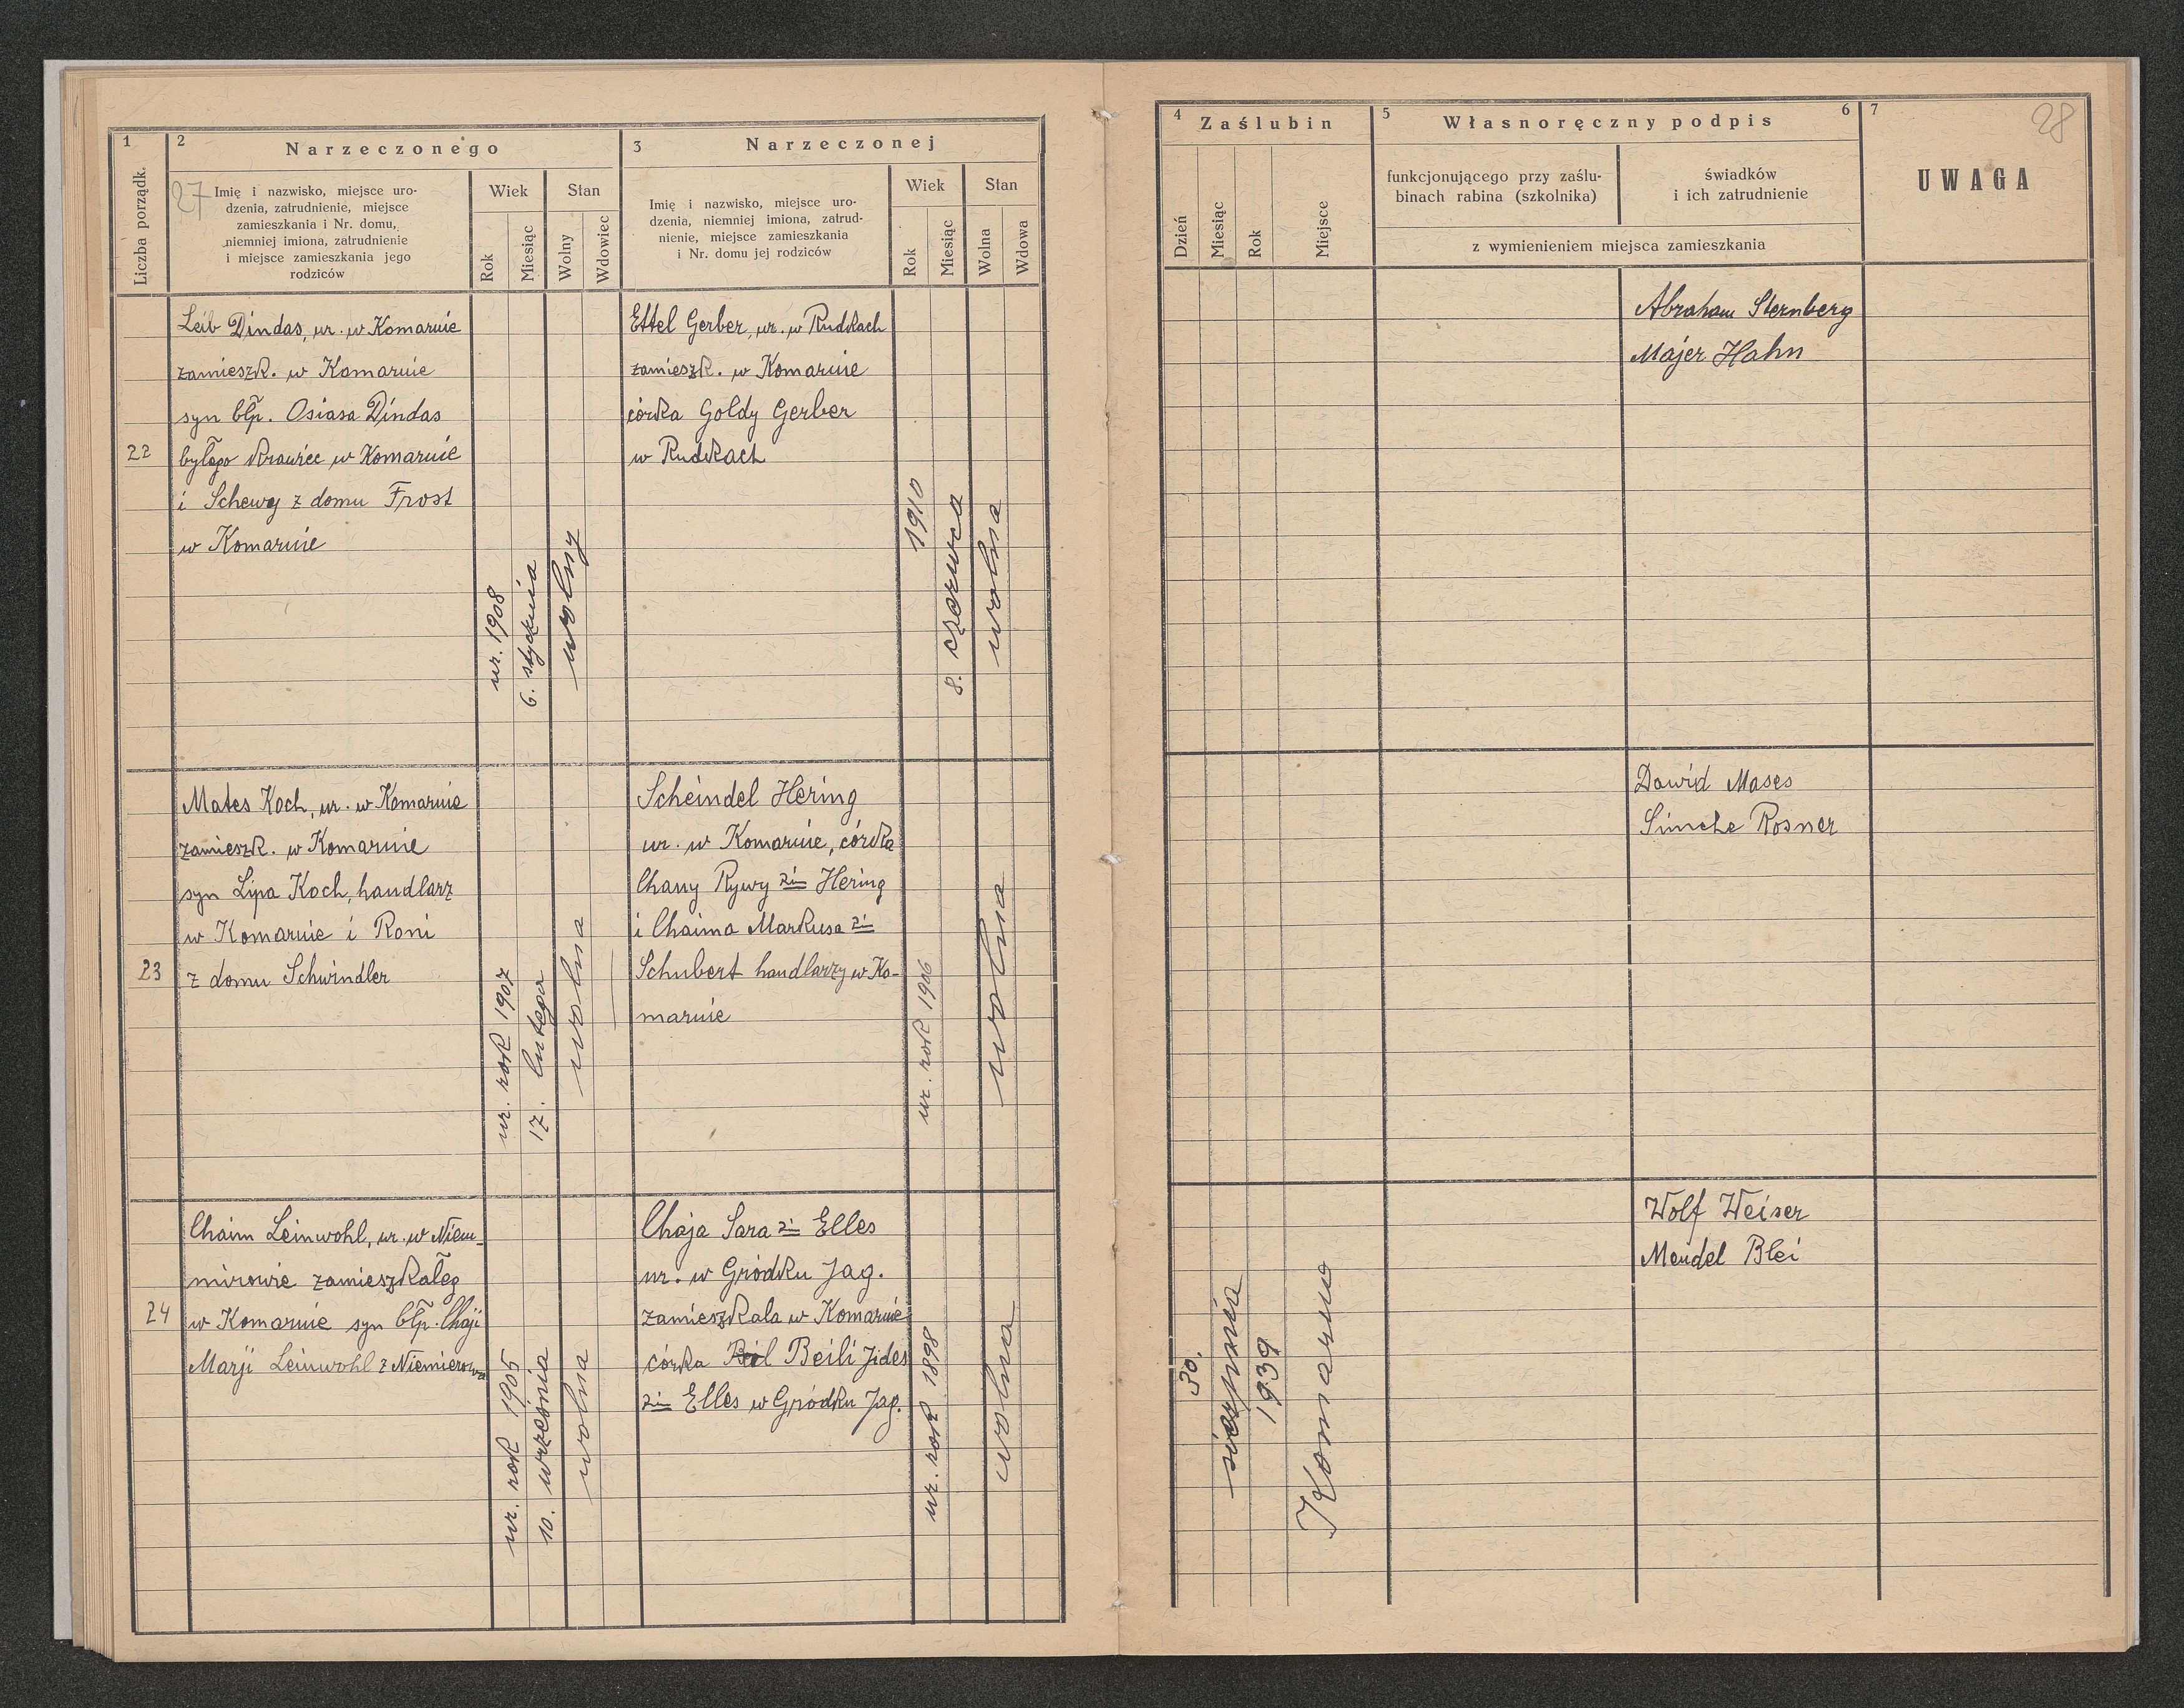 1
Liczba porządk.
2
Narzeczonego
27
Imię i nazwisko, miejsce uro-
dzenia, zatrudnienie, miejsce
zamieszkania i Nr. domu,
niemniej imiona, zatrudnienie
i miejsce zamieszkania jego
rodziców
Wiek
Stan
Rok
Miesiąc
Wolny
Wdowiec
3
Narzeczonej
Imię i nazwisko, miejsce uro-
dzenia, niemniej imiona, zatrud-
nienie, miejsce zamieszkania
i Nr. domu jej rodziców
Wiek
Stan
Rok
Miesiąc
Wolna
Wdowa
4
Zaślubin
Dzień
Miesiąc
Rok
Miejsce
5
Własnoręczny podpis
6
funkcjonującego przy zaślu-
binach rabina (szkolnika)
świadków
i ich zatrudnienie
z wymienieniem miejsca zamieszkania
7
UWAGA
28
22
Leib Dindas, ur. w Komarnie
zamieszk. w Komarnie
syn błp. Osiasa Dindas
byłego krawiec w Komarnie
i Schewy z domu Frost
w Komarnie
ur. 1908
6. stycznia
wolny
Ettel Gerber, ur. w Rudkach
zamieszk. w Komarnie
córka Goldy Gerber
w Rudkach
1910
8. czerwca
wolna
Abraham Sternberg
Majer Hahn
23
Mates Koch, ur. w Komarnie
zamieszk. w Komarnie
syn Lipa Koch, handlarz
w Komarnie i Roni
z domu Schwindler
ur. rok 1907
17. lutego
wolna
Scheindel Hering
ur. w Komarnie, córka
Chany Rywy zim Hering
i Chaima Markusa zim
Schubert handlarzy w Ko-
marnie
ur. rok 1906
wolna
Dawid Moses
Simche Rosner
24
Chaim Leinwohl, ur. w Niem-
mirowie zamieszkałeg
w Komarnie syn błp. Chaji
Marji Leinwohl z Niemierowa
ur. rok 1905
10. września
wolna
Chaja Sara zim Elles
ur. w Gródku Jag.
zamieszkala w Komarnie
córka Beili Jides
zim Elles w Gródku Jag.
ur. rok 1898
wolna
30.
sierpnia
1939
Komarno
Wolf Weiser
Mendel Blei